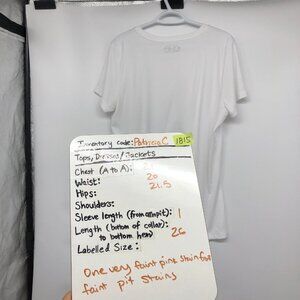 Inventory code: Patricia C 1815
Tops, Dresses/Jackets
Chest (A to A):
Waist: 20
Hips: 21.5
Shoulders:
Sleeve length (from armpit): 1
Length (bottom of collar): 26
to bottom hem)
Labelled Size:
One very faint pink stain
faint pit stains